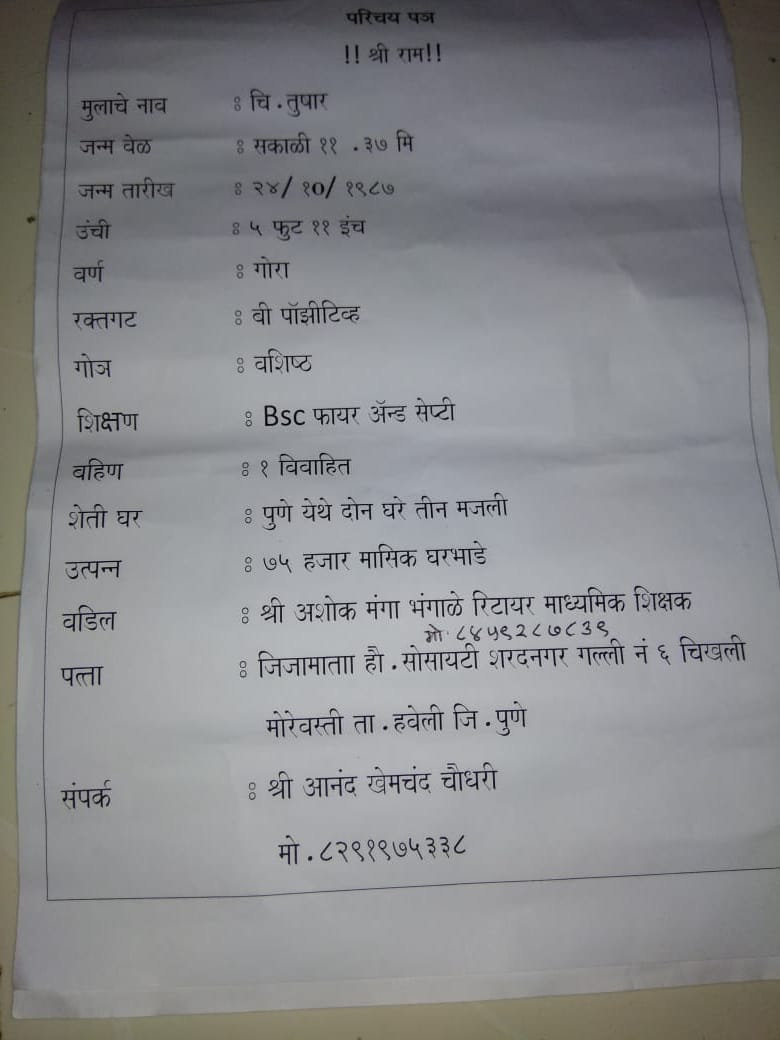 परिचय पञ
!! श्री राम!!
मुलाचे नाव : चि . तुषार
जन्म वेळ : सकाळी ११ . ३७ मि
जन्म तारीख : २४/ १०/ १९८७
उंची : ५ फुट ११ इंच
वर्ण : गोरा
रक्तगट : बी पॉझीटिव्ह
गोञ : वशिष्ठ
शिक्षण : Bsc फायर ॲन्ड सेप्टी
बहिण : १ विवाहित
शेती घर : पुणे येथे दोन घरे तीन मजली
उत्पन्न : ७५ हजार मासिक घरभाडे
वडिल : श्री अशोक मंगा भंगाळे रिटायर माध्यमिक शिक्षक
मो. ८४५९२८७८३९
पत्ता : जिजामाताा हौ . सोसायटी शरदनगर गल्ली नं ६ चिखली
मोरेवस्ती ता . हवेली जि . पुणे
संपर्क : श्री आनंद खेमचंद चौधरी
मो . ८२९१९७५३३८